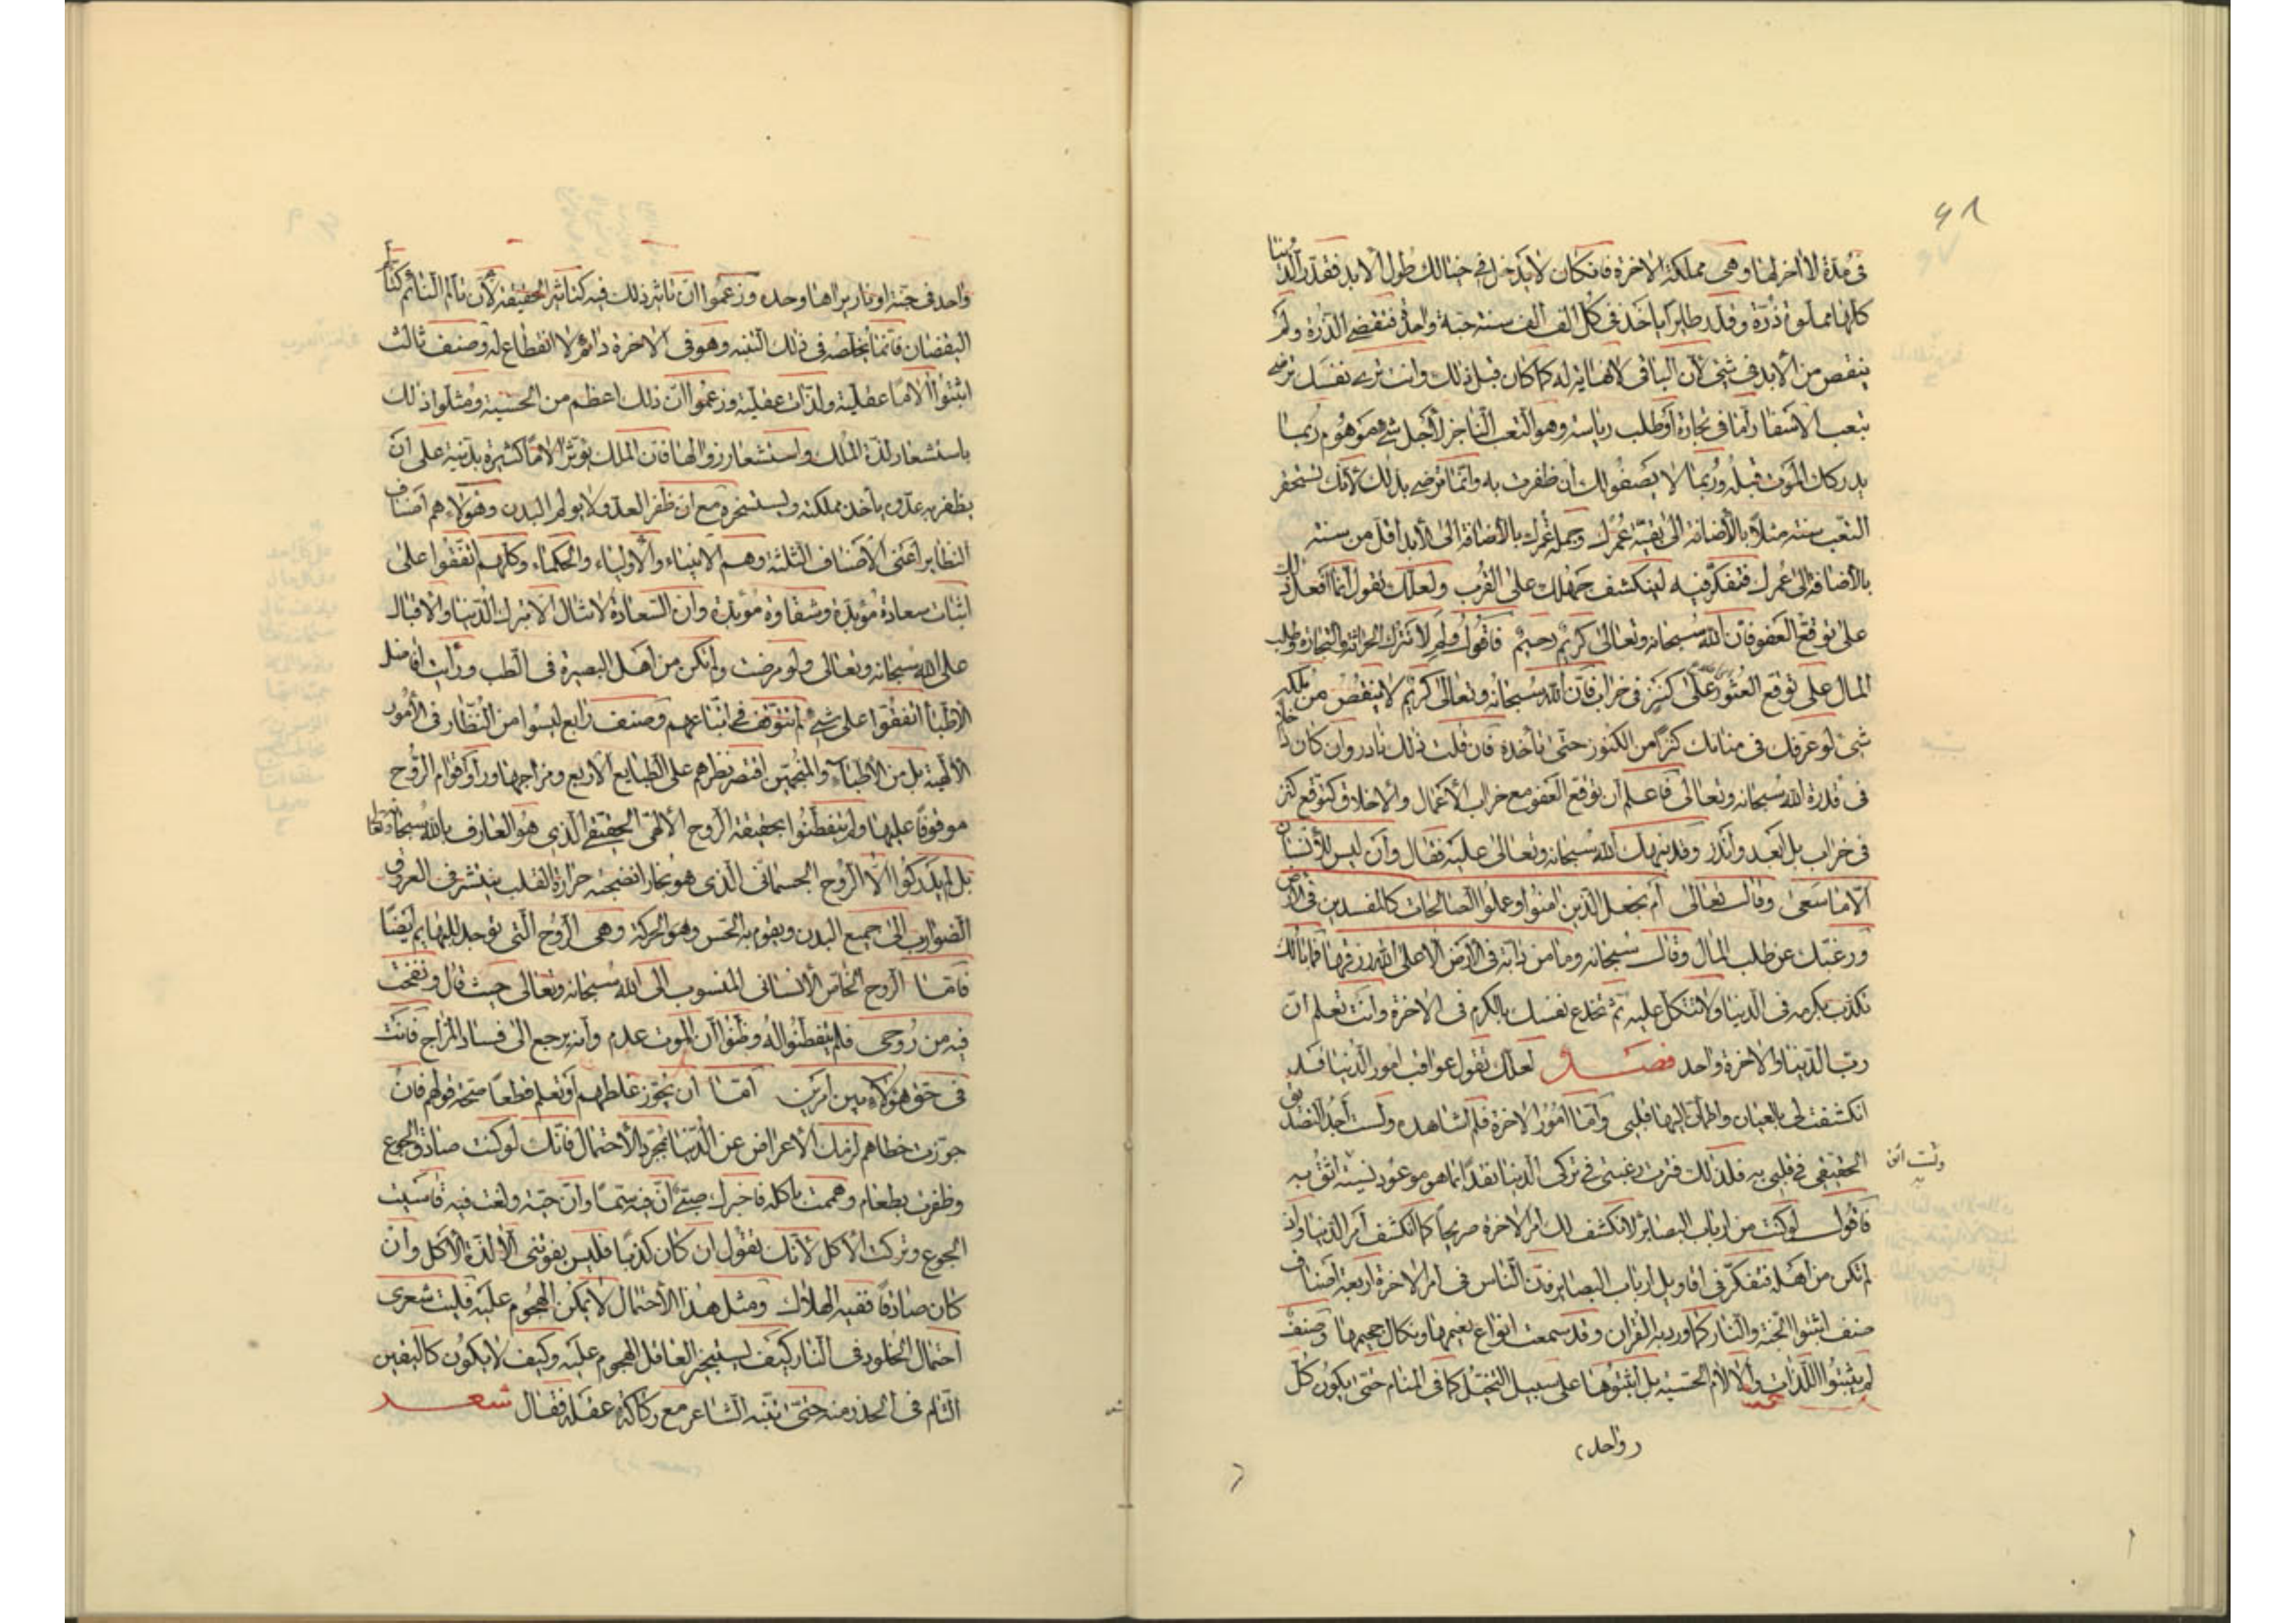 ٤٨
فى مدة لا اخر لها وهى مملكة الاخرة فان كان لا يدخل فى خيالك طول الابد فقدر الدنيا
كلها مملوة ذرة وقدر طايرا ياخذ فى كل الف الف سنة حبة واحدة فتنقضى الذرة ولم
ينقص من الابد فى شئ لان الباقى لا نهاية له كما كان قبل ذلك وانت ترى نفسك ترضى
بتعب الاسفار اما فى تجارة او طلب رياسة وهو التعب الناجز لاجل شئ موهوم ربما
يدركك الموت قبله وربما لا يصفو لك ان ظفرت به وانما ترضى بذلك لانك تستحقر
التعب سنة مثلا بالاضافة الى بقية عمرك وجملة عمرك بالاضافة الى الابد اقل من سنة
بالاضافة الى عمرك فتفكر فيه لينكشف جهلك على القرب ولعلك تقول انما افعل ذلك
على توقع العفو فان الله سبحانه وتعالى كريم رحيم فاقول ولم لا تترك الحراثة والتجارة وطلب
المال على توقع العثور على كنز فى خراب فان الله سبحانه وتعالى كريم لا ينقص من ملكه
شئ لو عرفك فى منامك كنزا من الكنوز حتى تاخذه فان قلت ذلك نادر وان كان داخلا
فى قدرة الله سبحانه وتعالى فاعلم ان توقع العفو مع خراب الاعمال والاخلاق كتوقع كنز
فى خراب بل ابعد واندر وقد نبهك الله سبحانه وتعالى عليه فقال وان ليس للانسان
الا ما سعى وقال تعالى ام نجعل الذين امنوا وعملوا الصالحات كالمفسدين فى الارض
ورغبك عن طلب المال وقال سبحانه وما من دابة فى الارض الا على الله رزقها فما بالك
تكذب بكرمه فى الدنيا ولا تتكل عليه ثم تخدع نفسك بالكرم فى الاخرة وانت تعلم ان
رب الدنيا والاخرة واحد فصل لعلك تقول عواقب امور الدنيا قد
انكشفت لى بالعيان واطمان اليها قلبى واما امور الاخرة فلم اشاهده ولست اجد التصديق
الحقيقى فى قلبى به فلذلك فترت رغبتى فى تركى الدنيا نقدا بما هو موعود نسيئة اثق به
ولست اثق به
فاقول لو كنت من ارباب البصائر لانكشف لك امر الاخرة صريحا كما انكشف امر الدنيا وان
لم تكن من اهله فتفكر فى اقاويل ارباب البصاير فان الناس فى امر الاخرة اربعة اصناف
صنف اثبتوا الجنة والنار كما ورد به القران وقد سمعت انواع نعيمها ونكال جحيمها وصنف
لم يثبتوا اللذات والالام الحسية بل اثبتوها على سبيل التخيل كما فى المنام حتى يكون كل
واحد
واحد فى جنة او نار يراها وحده وزعموا ان تاثير ذلك فيه كتاثير الحقيقة لان تالم النائم كتالم
اليقضان فانما يخلصه فى ذلك التنبه وهو فى الاخرة دائم لا انقطاع له وصنف ثالث
اثبتوا الاما عقلية ولذات عقلية وزعموا ان ذلك اعظم من الحسية ومثلوا ذلك
باستشعار لذة الملك واستشعار زوالها فان الملك يوثر الاما كثيرة بدنية على ان
يظفر به عدو ياخذ مملكته ويستسخره مع ان ظفر العدو لا يولم البدن وهولاء هم اصناف
النظاير اعنى الاصناف الثلثة وهم الانبياء والاولياء والحكماء وكلهم اتفقوا على
اثبات سعادة مؤبدة وشقاوة مؤبدة وان السعادة لا تنال الا بترك الدنيا والاقبال
على الله سبحانه وتعالى ولو مرضت ولم تكن من اهل البصيرة فى الطب ورايت افاضل
الاطبا اتفقوا على شئ لم تتوقف فى اتباعهم وصنف رابع ليسوا من النظار فى الامور
الالهية بل من الاطباء والمنجمين اقتصر نظرهم على الطبايع الاربع ومزاجها وراوا قوام الروح
موقوفا عليها ولم يتفطنوا بحقيقة الروح الالهى الحقيقى الذى هو العارف بالله سبحانه وتعالى
بل لم يدركوا الا الروح الجسمانى الذى هو بخار انضجته حرارة القلب ينتشر فى العروق
الضوارب الى جميع البدن ويقوم به الحس وهو الحركة وهى الروح التى توجد للبهايم ايضا
فاما الروح الخاص الانسانى المنسوب الى الله سبحانه وتعالى حيث قال ونفخت
فيه من روحى فلم يتفطنوا له وظنوا ان الموت عدم وانه يرجع الى فساد المزاج فانت
فى حق هولاء بين امرين اما ان تجوز غلطهم او تعلم قطعا صحة قولهم فان
جوزت خطاهم لزمك الاعراض عن الدنيا بمجرد الاحتمال فانك لو كنت صادق الجوع
وظفرت بطعام وهممت باكله فاخبرك صبى ان فيه سما وان حية ولغت فيه قاسيت
الجوع وتركت الاكل لانك تقول ان كان كذبا فليس يفوتنى الا لذة الاكل وان
كان صادقا ففيه الهلاك ومثل هذا الاحتمال لا يمكن الهجوم عليه فليت شعرى
احتمال الخلود فى النار كيف يستجيز العاقل الهجوم عليه وكيف لا يكون كاليقين
التام فى الحذر منه حتى تنبه الشاعر مع ركاكة عقله فقال شعر